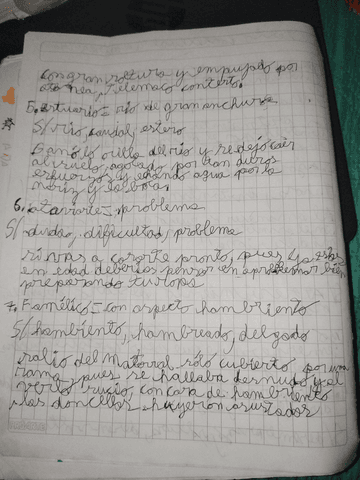 con gran soltura y empujado por
5. Estuario = rio de gran anchura
S/ rio, caudal, estero
Ganó la orilla del rio y se dejó caer
al suelo, agotado por tan duros
esfuerzos y echando agua por la
nariz y la boca.
6. = problema
S/ dudas, dificultad, problema
pronto, pues ya estás
en edad deberias pensar en bien
preparando tu ropa
7. Famélico = con aspecto hambriento
S/ hambiento, hambreado, delgado
salio del matorral sólo cubierto por una
rama, pues se hallaba desnudo y al
verlo sucio, con cara de hambriento
las doncellas huyeron asustadas